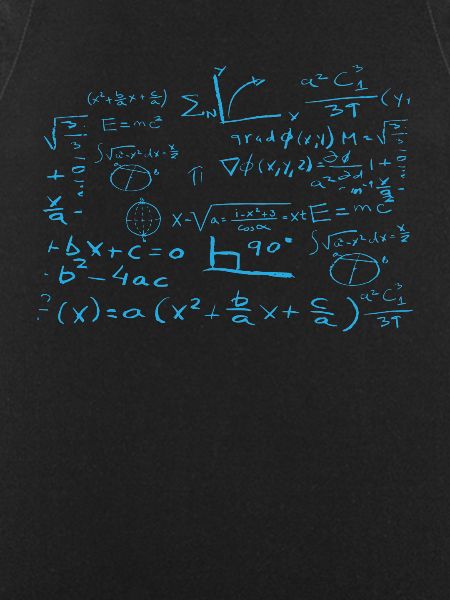 (x²+b/a x+c/a) Σ_IN Y x a²C₁³/3π (Y,
√3/3 E=mc²
grad φ(x,y) M=√3/3
∫√a²-x² dx=x/2
π ∇φ(x,y,z)=∂φ/∂d 1+
a B
x/a
x=√a=1-x²+3/cosα =xt E=mc²
+bx+c=0 90° ∫√a²-x² dx=x/2
-b²-4ac a B
?(x)=a(x²+b/a x+c/a) a²C₁³/3π